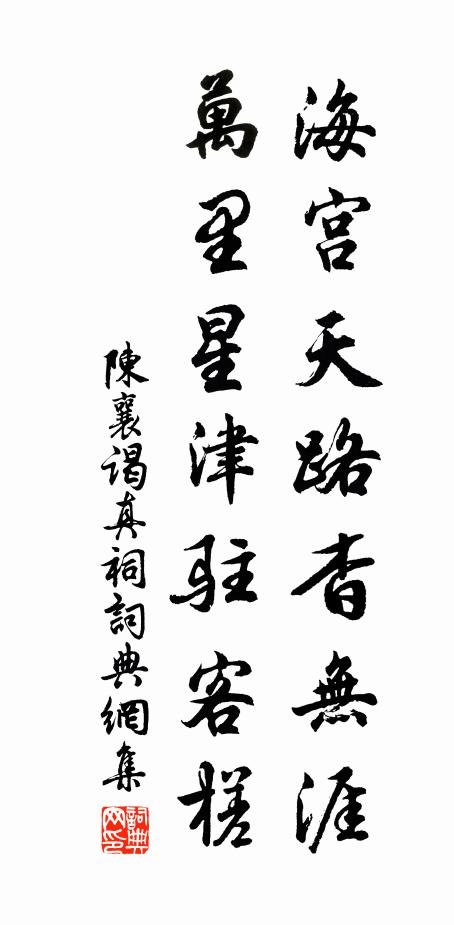 海宫天路杳無涯
萬里星津駐客槎
陳襄謁真祠詞典網集
詞典网印